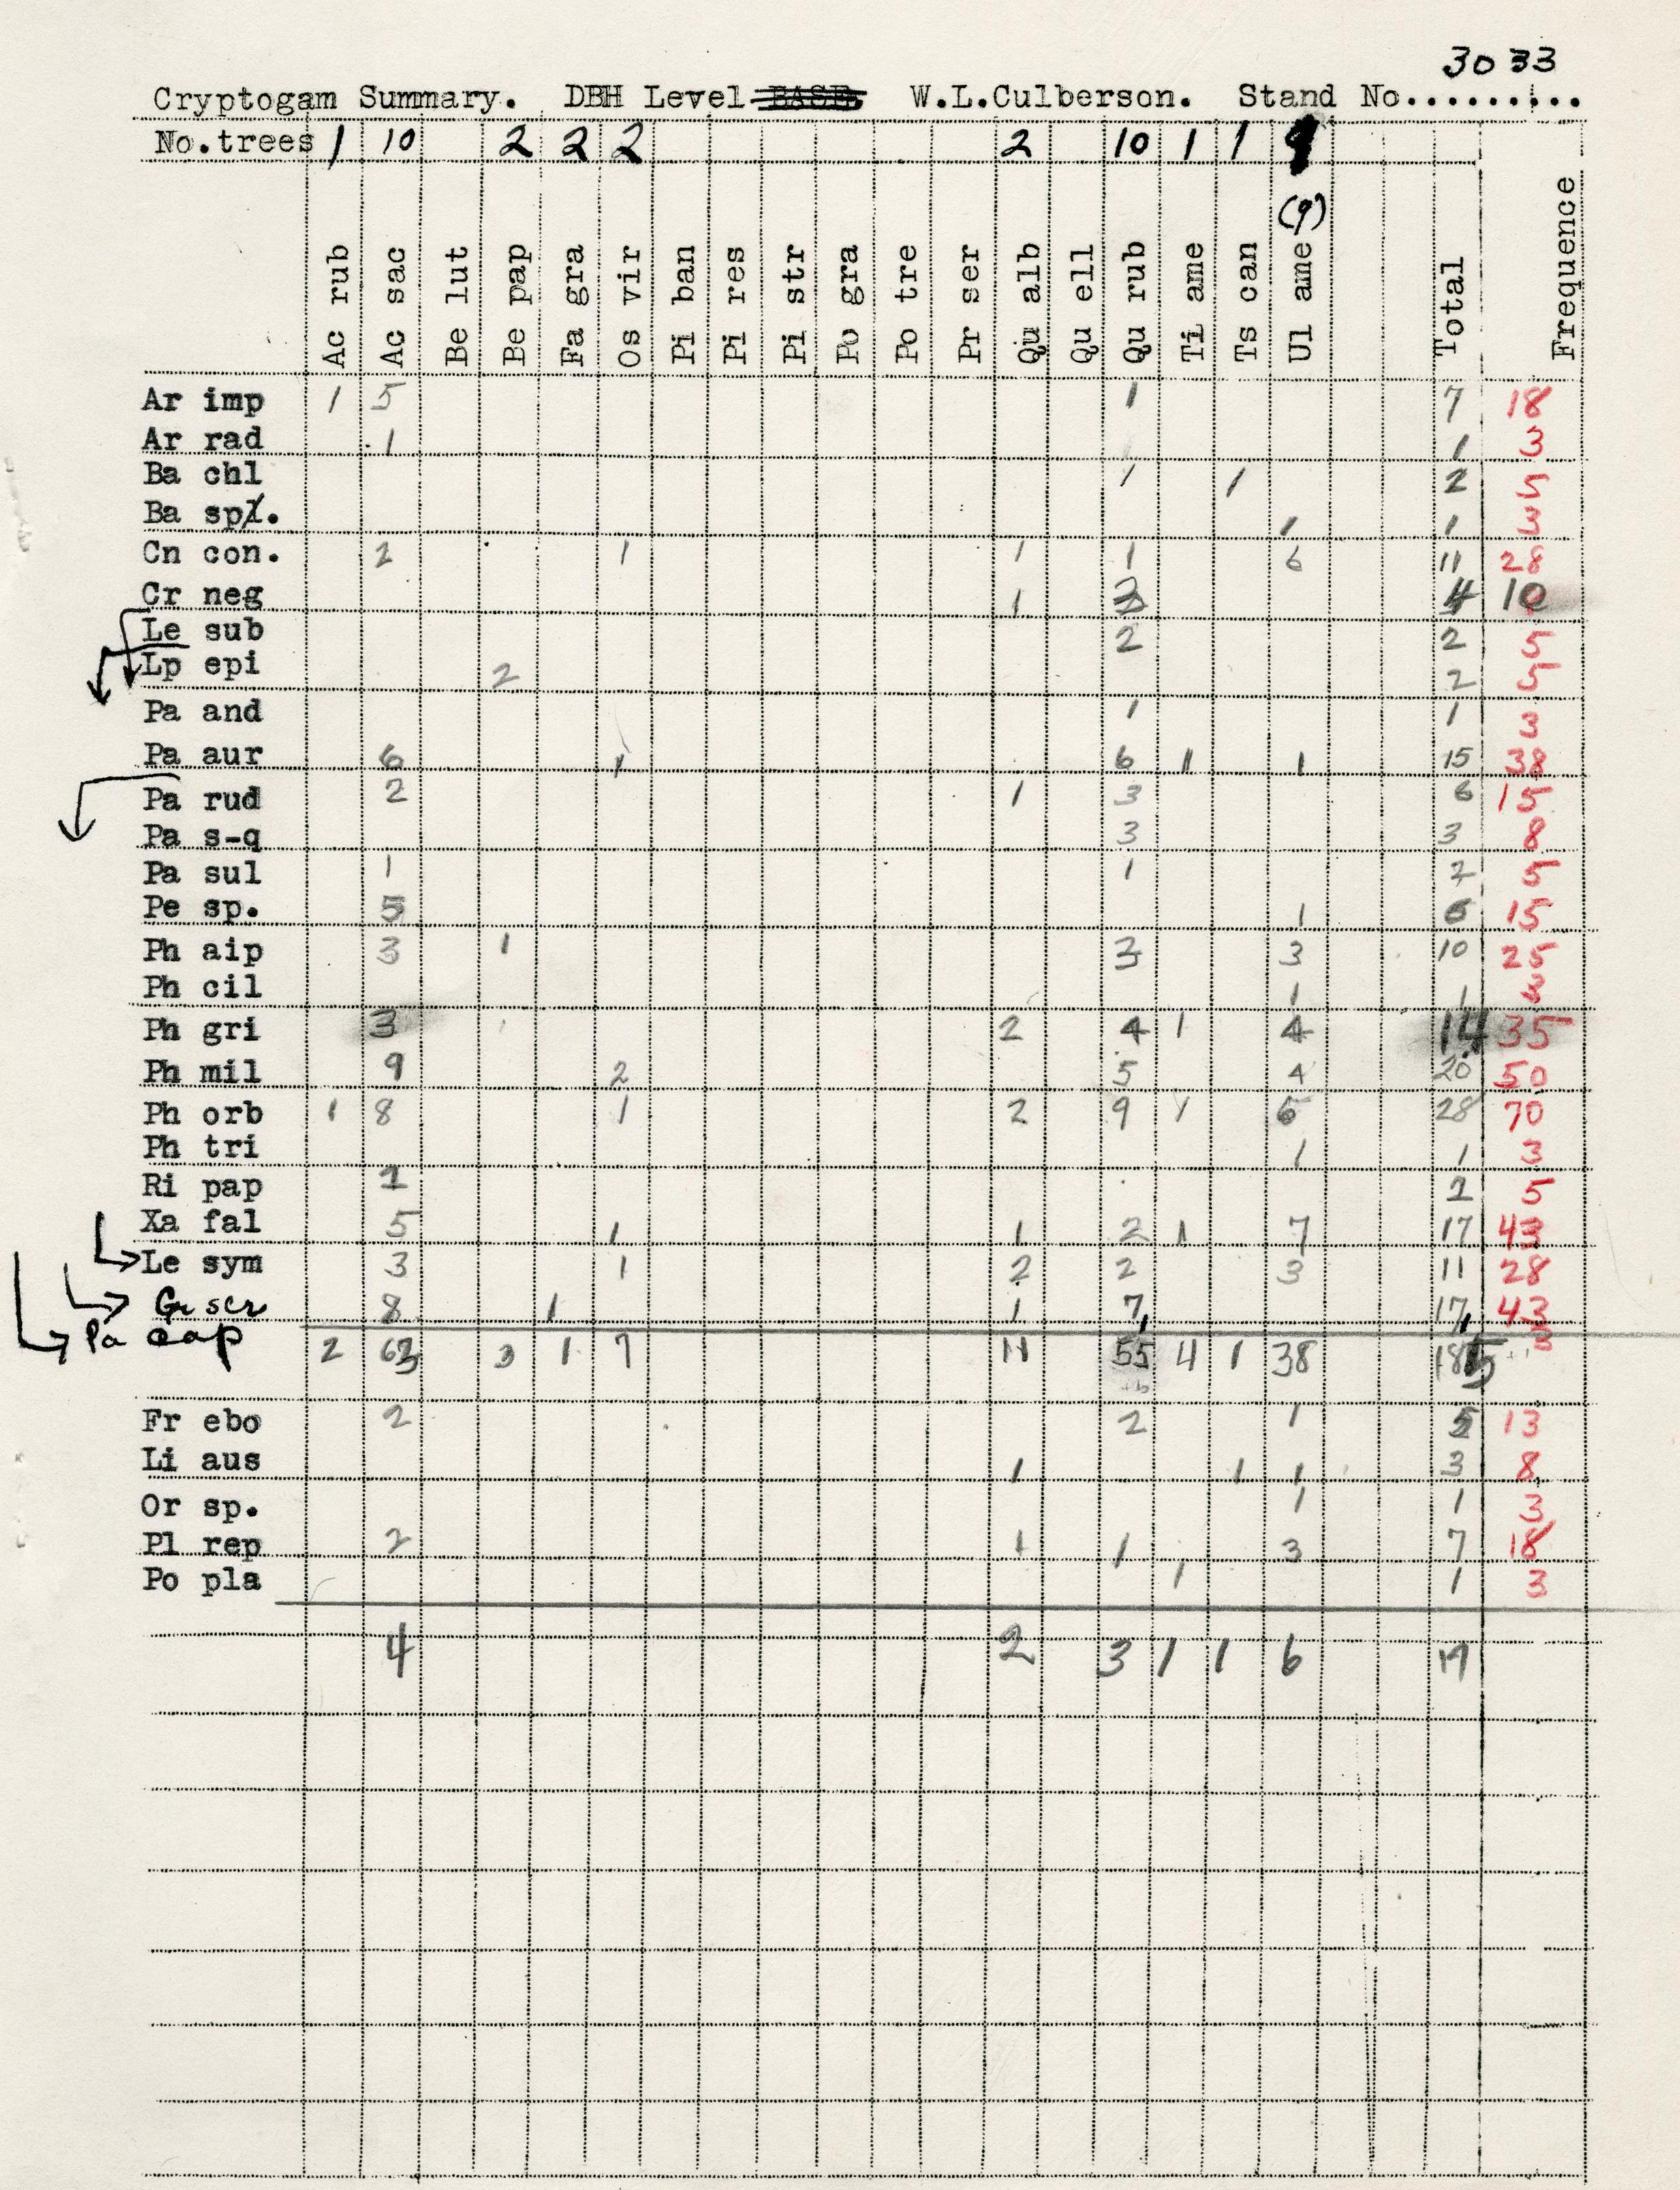 3033
Cryptogam Summary. DBH Level BASE W.L.Culberson. Stand No.........
No.trees 1 10 2 2 2 2 10 1 1 9
(9)
Ac rub Ac sac Be lut Be pap Fa gra Os vir Pi ban Pi res Pi str Po gra Po tre Pr ser Qu alb Qu ell Qu rub Ti ame Ts can Ul ame Total Frequence
Ar imp 1 5 1 7 18
Ar rad 1 1 3
Ba chl 1 1 2 5
Ba sp. 1 1 3
Cn con. 2 1 1 1 6 11 28
Cr neg 1 3 4 10
Le sub 2 2 5
Lp epi 2 2 5
Pa and 1 1 3
Pa aur 6 1 6 1 1 15 38
Pa rud 2 1 3 6 15
Pa s-q 3 3 8
Pa sul 1 1 2 5
Pe sp. 5 1 6 15
Ph aip 3 1 3 3 10 25
Ph cil 1 1 3
Ph gri 3 2 4 1 4 14 35
Ph mil 9 2 5 4 20 50
Ph orb 1 8 1 2 9 1 6 28 70
Ph tri 1 1 3
Ri pap 2 2 5
Xa fal 5 1 1 2 1 7 17 43
Le sym 3 1 2 2 3 11 28
Gr scr 8 1 1 7 17 43
Pa cap 3
2 63 3 1 7 11 55 4 1 38 185
Fr ebo 2 2 1 5 13
Li aus 1 1 1 3 8
Or sp. 1 1 3
Pl rep 2 1 1 3 7 18
Po pla 1 1 3
4 2 3 1 1 6 17